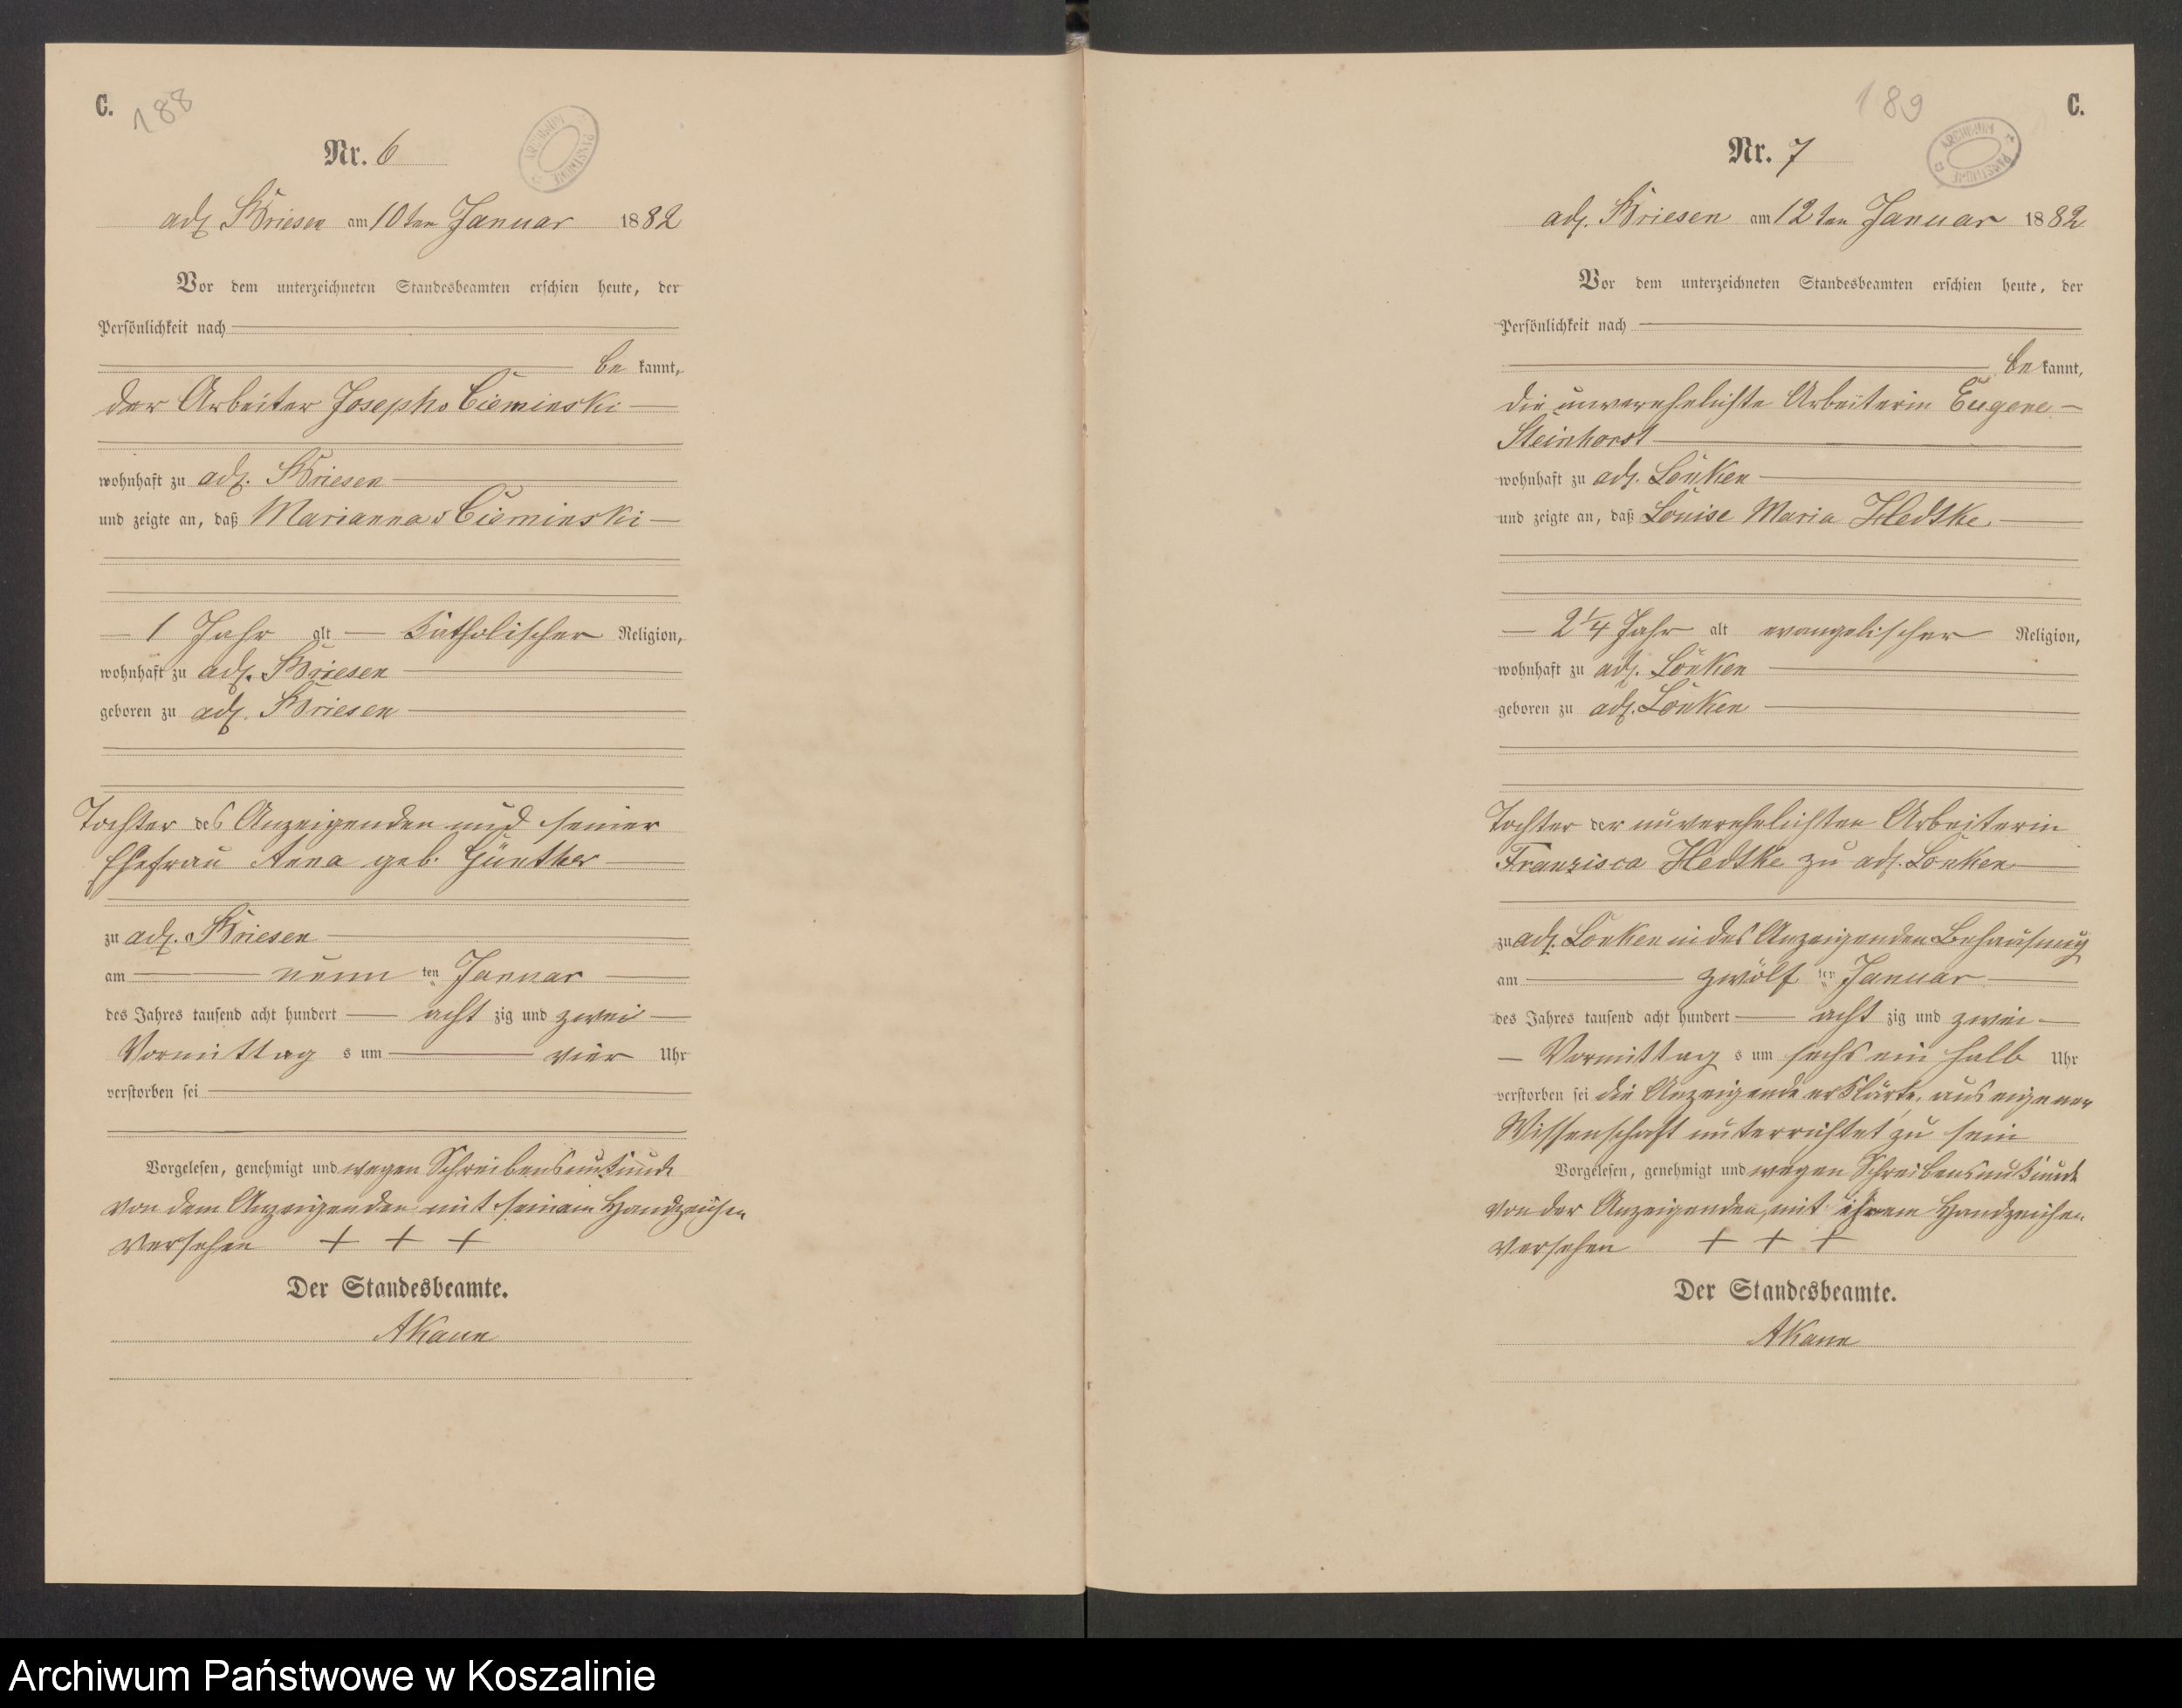 C.
188
Nr. 6
ARCHIWUM PAŃSTWOWE
adl. Briesen am 10ten Januar 1882
Vor dem unterzeichneten Standesbeamten erschien heute, der
Persönlichkeit nach
be kannt,
der Arbeiter Joseph Cieminski
wohnhaft zu adl. Briesen
und zeigte an, daß Marianna Cieminski
1 Jahr alt katholischer Religion,
wohnhaft zu adl. Briesen
geboren zu adl. Briesen
Tochter des Anzeigenden und seiner
Ehefrau Anna geb. Günther
zu adl. Briesen
am neun ten Januar
des Jahres tausend acht hundert acht zig und zwei
Vormittag s um vier Uhr
verstorben sei
Vorgelesen, genehmigt und wegen Schreibensunkunde
von dem Anzeigenden mit seinem Handzeichen
versehen + + +
Der Standesbeamte.
AKann
189
C.
Nr. 7
ARCHIWUM PAŃSTWOWE
adl. Briesen am 12ten Januar 1882
Vor dem unterzeichneten Standesbeamten erschien heute, der
Persönlichkeit nach
be kannt,
die unverehelichte Arbeiterin Eugene
Steinhorst
wohnhaft zu adl. Lonken
und zeigte an, daß Louise Maria Hedtke
2 1/4 Jahr alt evangelischer Religion,
wohnhaft zu adl. Lonken
geboren zu adl. Lonken
Tochter der unverehelichten Arbeiterin
Franzisca Hedtke zu adl. Lonken
zu adl. Lonken in des Anzeigenden Behausung
am zwölf ten Januar
des Jahres tausend acht hundert acht zig und zwei
Vormittag s um sechs ein halb Uhr
verstorben sei die Anzeigende erklärte, aus eigener
Wissenschaft unterrichtet zu sein
Vorgelesen, genehmigt und wegen Schreibensunkunde
von der Anzeigenden, mit ihrem Handzeichen
versehen + + +
Der Standesbeamte.
AKann
Archiwum Państwowe w Koszalinie